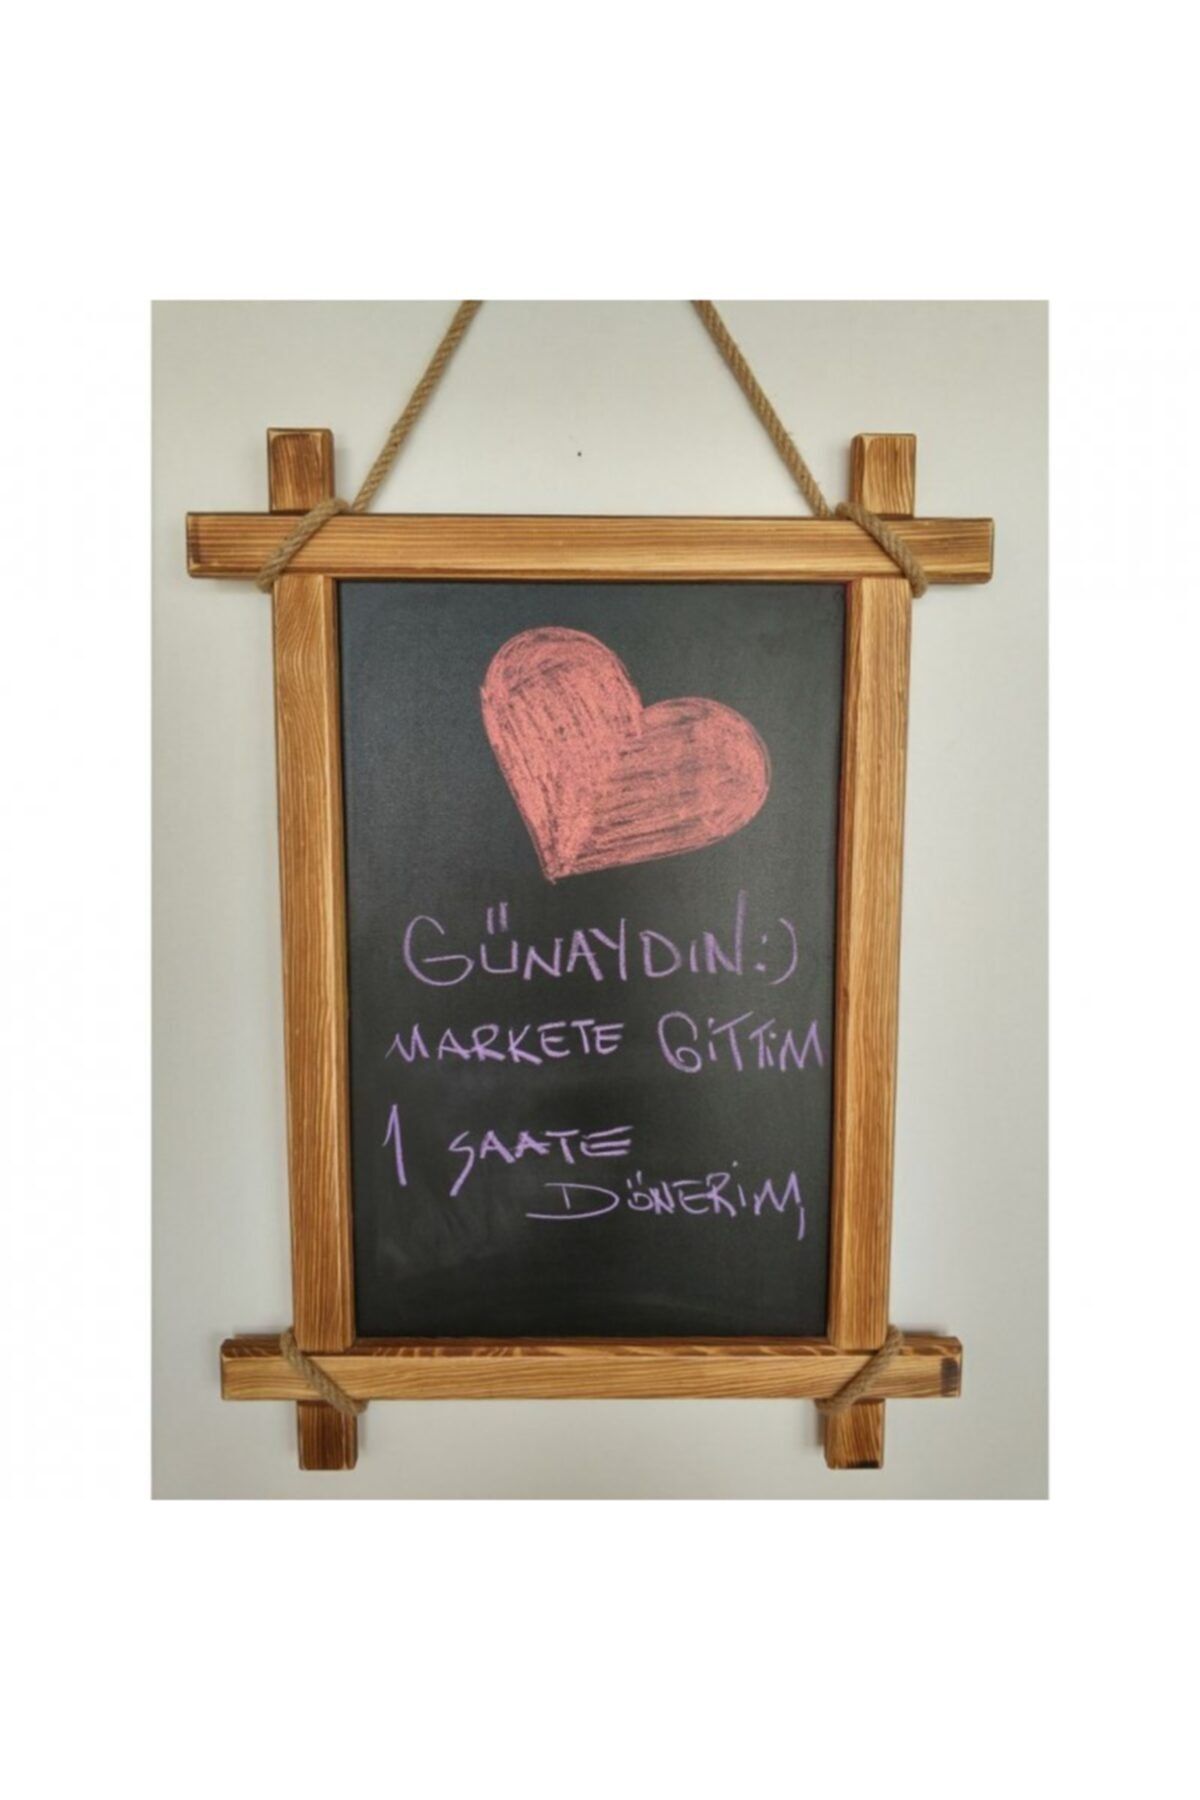 GÜNAYDIN:)
MARKETE GİTTİM
1 SAATE
DÖNERİM